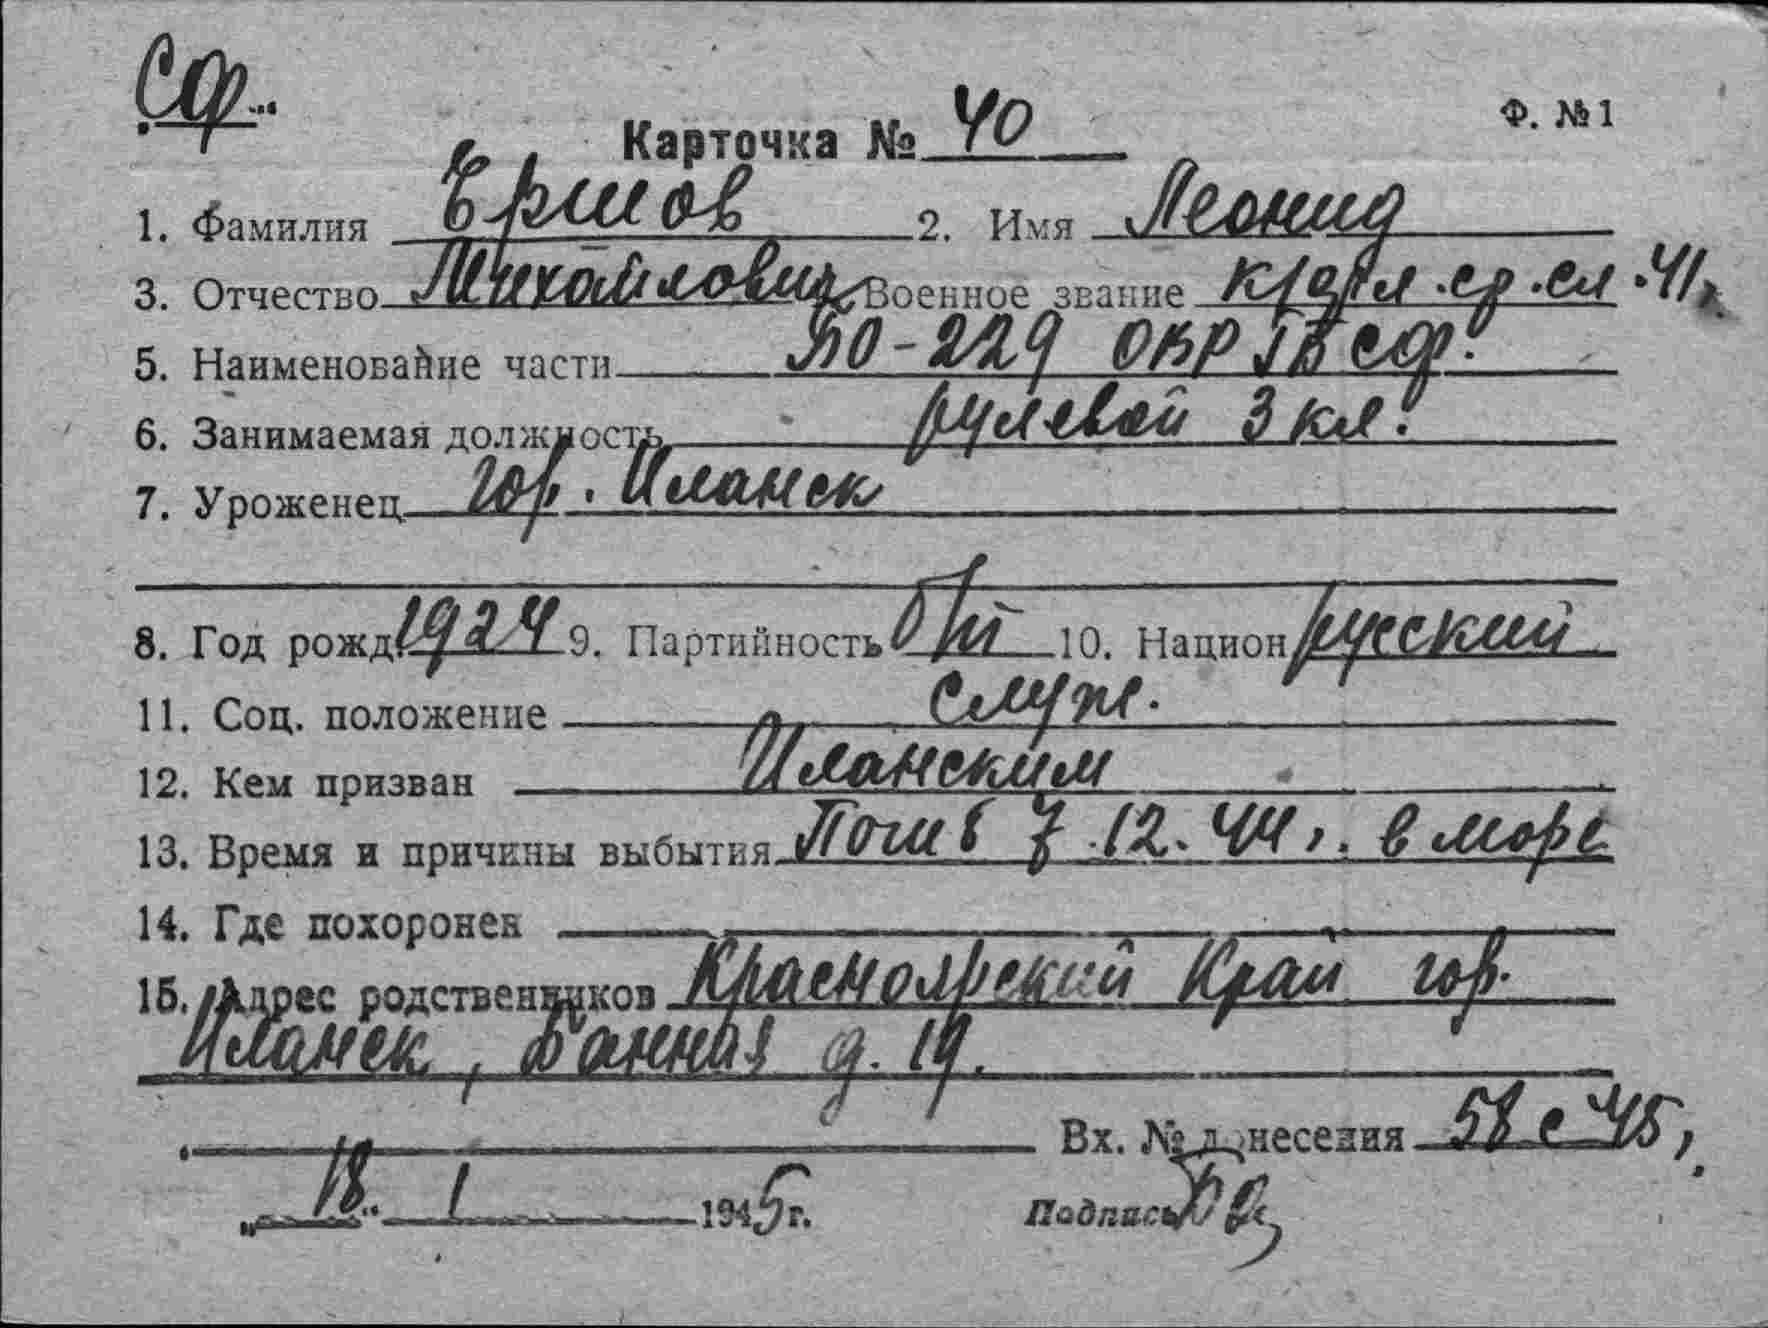 СФ
Ф. №1
Карточка № 40
1. Фамилия Ершов 2. Имя Леонид
3. Отчество Михайлович Военное звание кр/фл. ср. сл. 41г.
5. Наименование части БО-229 ОВР ГБ СФ.
6. Занимаемая должность рулевой 3 кл.
7. Уроженец гор. Иланск
8. Год рожд. 1924 9. Партийность б/п 10. Национ русский
11. Соц. положение служ.
12. Кем призван Иланским
13. Время и причины выбытия Погиб 7.12.44г. в море
14. Где похоронен
15. Адрес родственников Красноярский Край гор.
Иланск, Банная д. 19.
Вх. № донесения 58 с 45г.
„18“ 1 1945г. Подпись